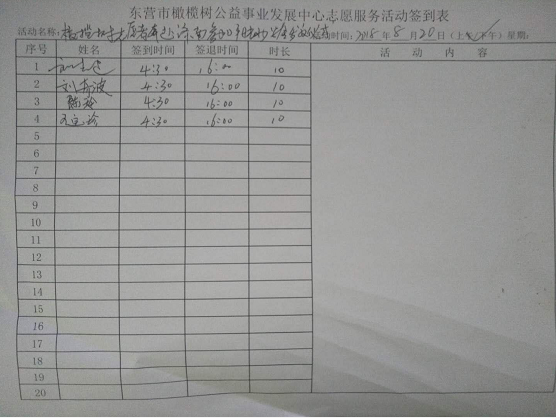 东营市橄榄树公益事业发展中心志愿服务活动签到表
活动名称: 橄榄树志愿者 时间: 2018 年 8 月 20 日 (上午/下午) 星期:
序号 姓名 签到时间 签退时间 时长 活动内容
1 4:30 16:00 10
2 刘 波 4:30 16:00 10
3 陈 4:30 16:00 10
4 4:30 16:00 10
5
6
7
8
9
10
11
12
13
14
15
16
17
18
19
20